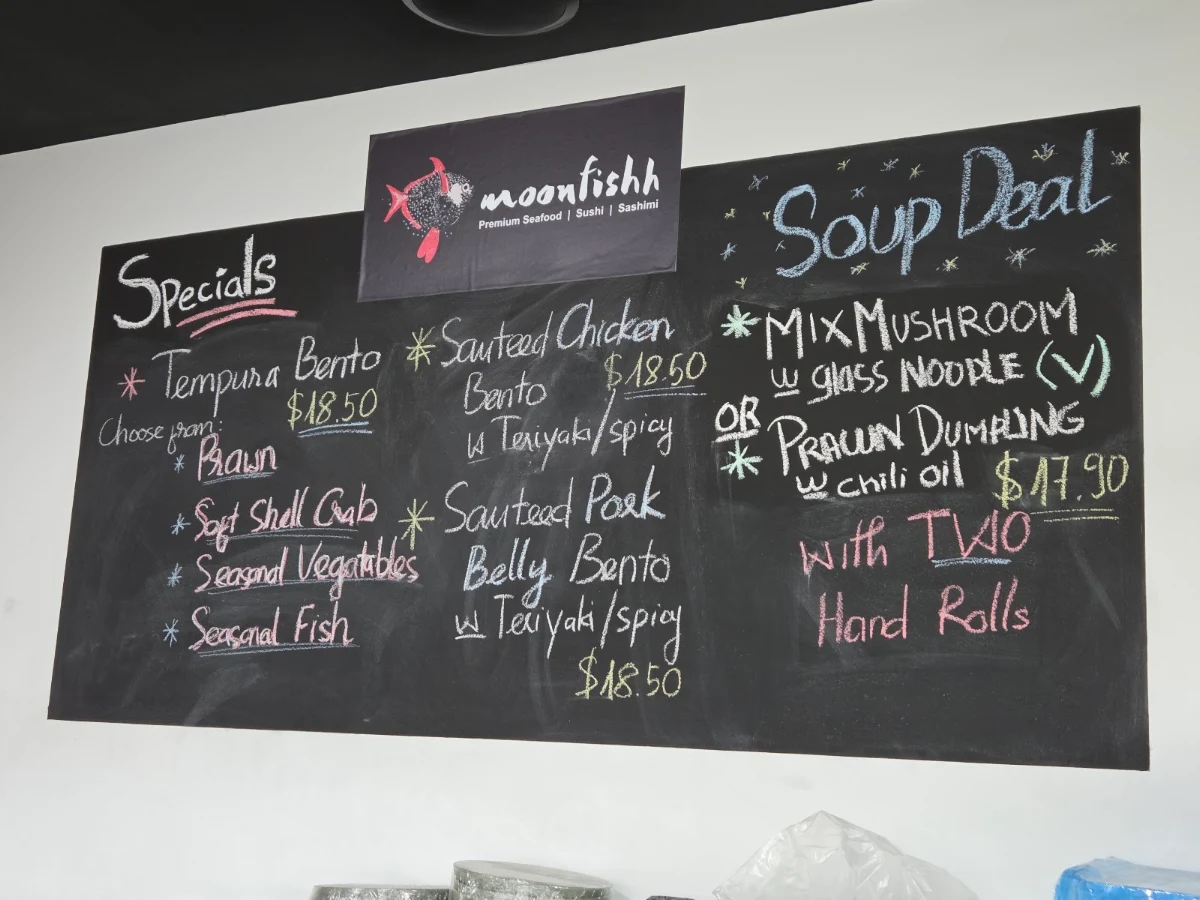 moonfishh
Premium Seafood | Sushi | Sashimi
Specials
* Tempura Bento
$18.50
Choose from:
* Prawn
* Soft Shell Crab
* Seasonal Vegatables
* Seasonal Fish
* Sauteed Chicken
Bento $18.50
w Teriyaki/spicy
* Sauteed Pork
Belly Bento
w Teriyaki/spicy
$18.50
Soup Deal
* MIX MUSHROOM
w glass NOODLE (V)
OR
* PRAWN DUMPLING
w chili oil $17.90
with TWO
Hand Rolls